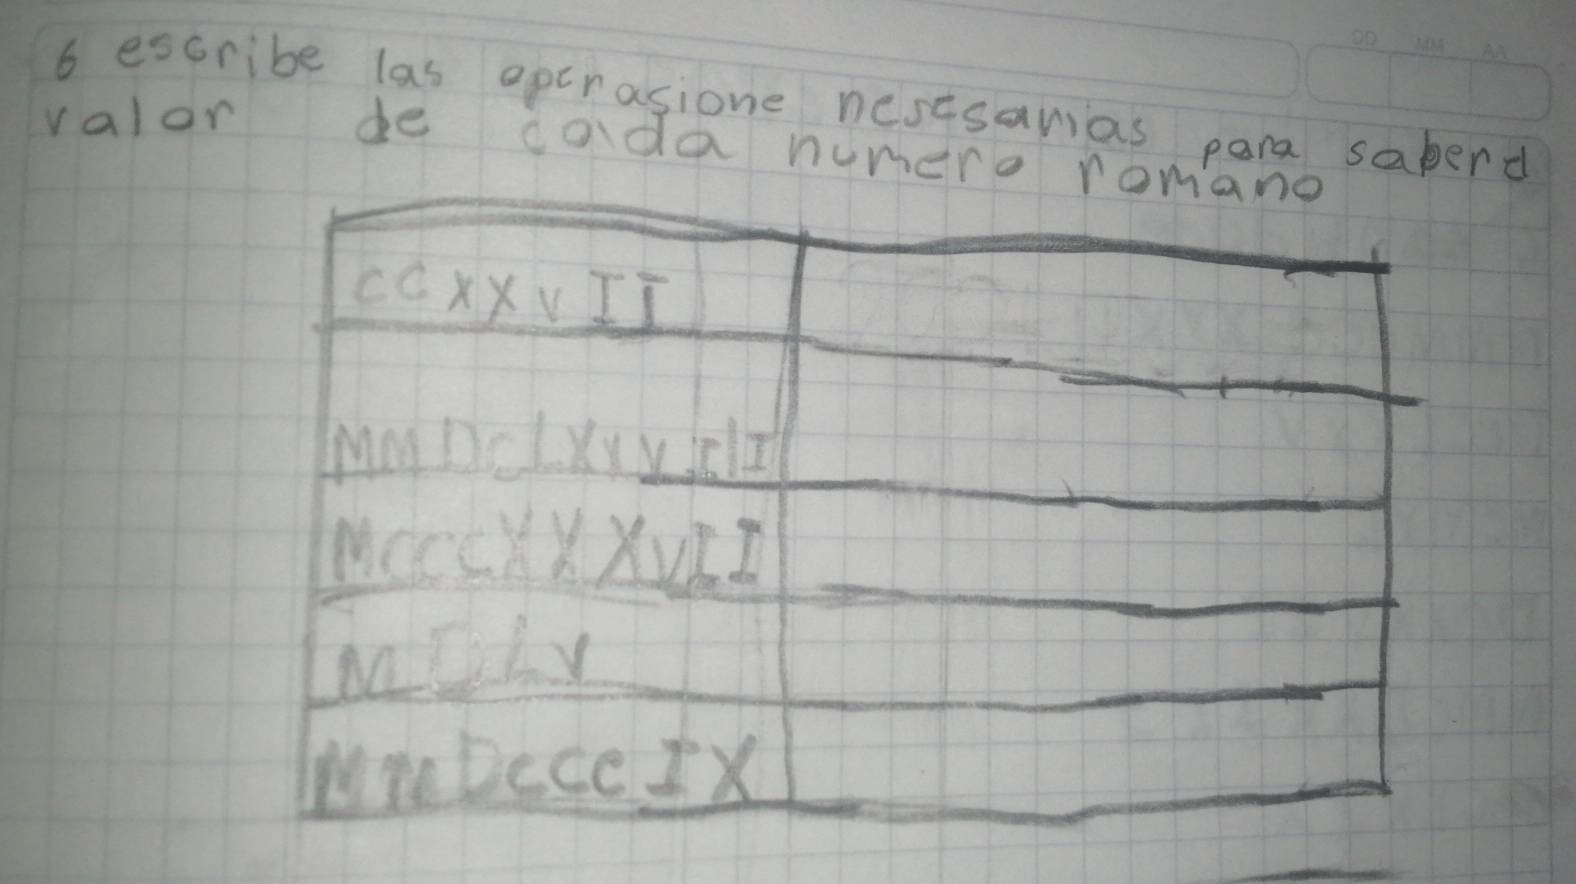 DD MM AA
6 escribe las operasione nesesarias para saber d
valor de cada numero romano
CCXXVII
MMDCLXXVIII
MCCCXXXVII
MDLV
MMDCCCIX